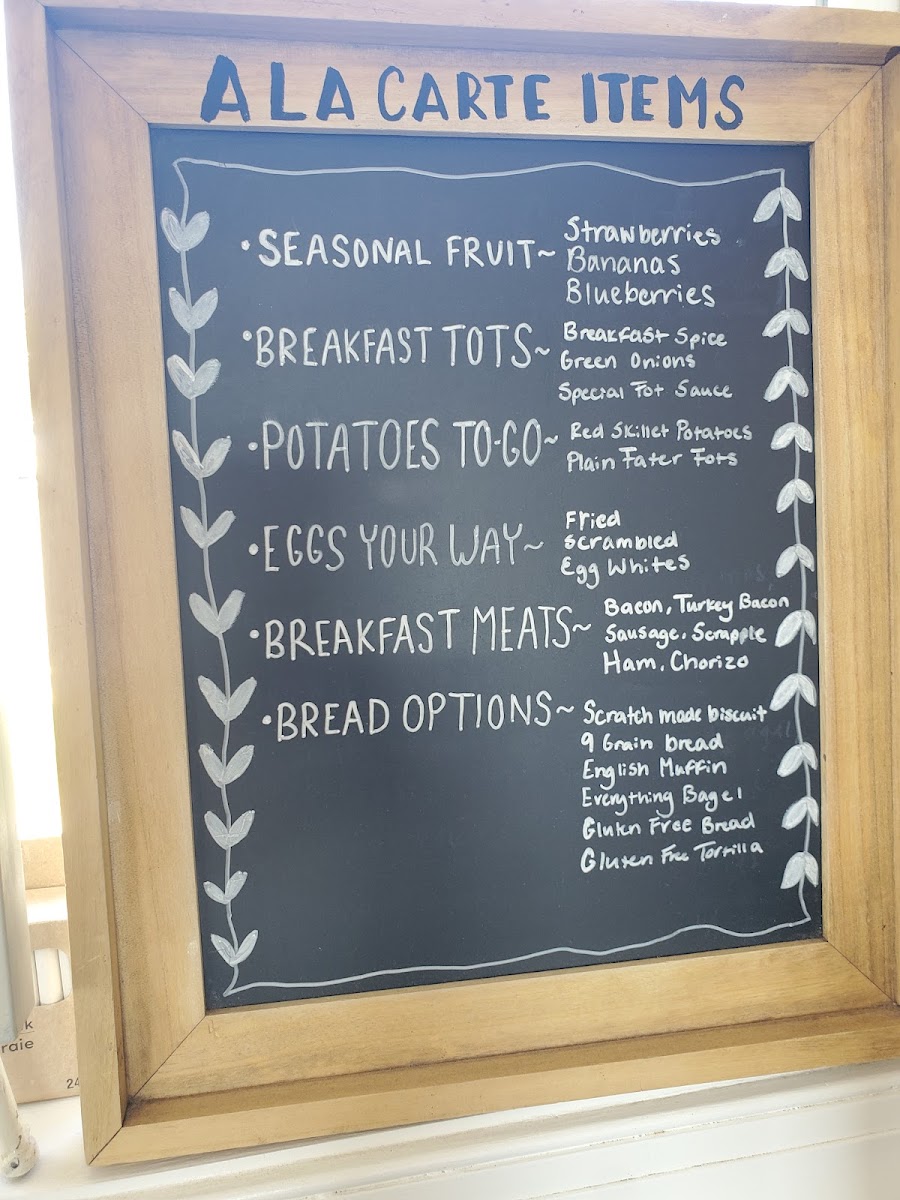 A LA CARTE ITEMS
• SEASONAL FRUIT~ Strawberries
Bananas
Blueberries
• BREAKFAST TOTS~ Breakfast Spice
Green Onions
Special Tot Sauce
• POTATOES TO-GO~ Red Skillet Potatoes
Plain Tater Tots
• EGGS YOUR WAY~ Fried
Scrambled
Egg Whites
• BREAKFAST MEATS~ Bacon, Turkey Bacon
Sausage, Scrapple
Ham, Chorizo
• BREAD OPTIONS~ Scratch made biscuit
9 Grain bread
English Muffin
Everything Bagel
Gluten Free Bread
Gluten Free Tortilla
k
raie
24